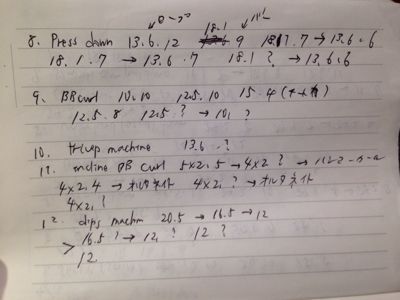 ロープ 18.1 バー
8. Press down 13.6.12 9 18.1.7 → 13.6.6
18.1.7 → 13.6.7 18.1 ? → 13.6.6
9. BB curl 10.10 12.5.10 15.4
12.5.8 12.5 ? → 10, ?
10. tricep machine 13.6.?
11. incline DB curl 5x2.5 → 4x2 ? → ハンマーカール
4x2.4 → オルタネイト 4x2, ? → オルタネイト
4x2, ?
12. dips machin 20.5 → 16.5 → 12
> 16.5 ? → 12, ? 12 ?
12.